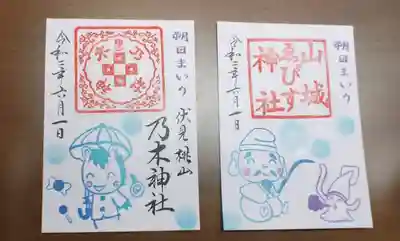 朔日まいり
伏見桃山
乃木神社
令和三年六月一日
朔日まいり
山城
ゑびす
神社
令和三年六月一日